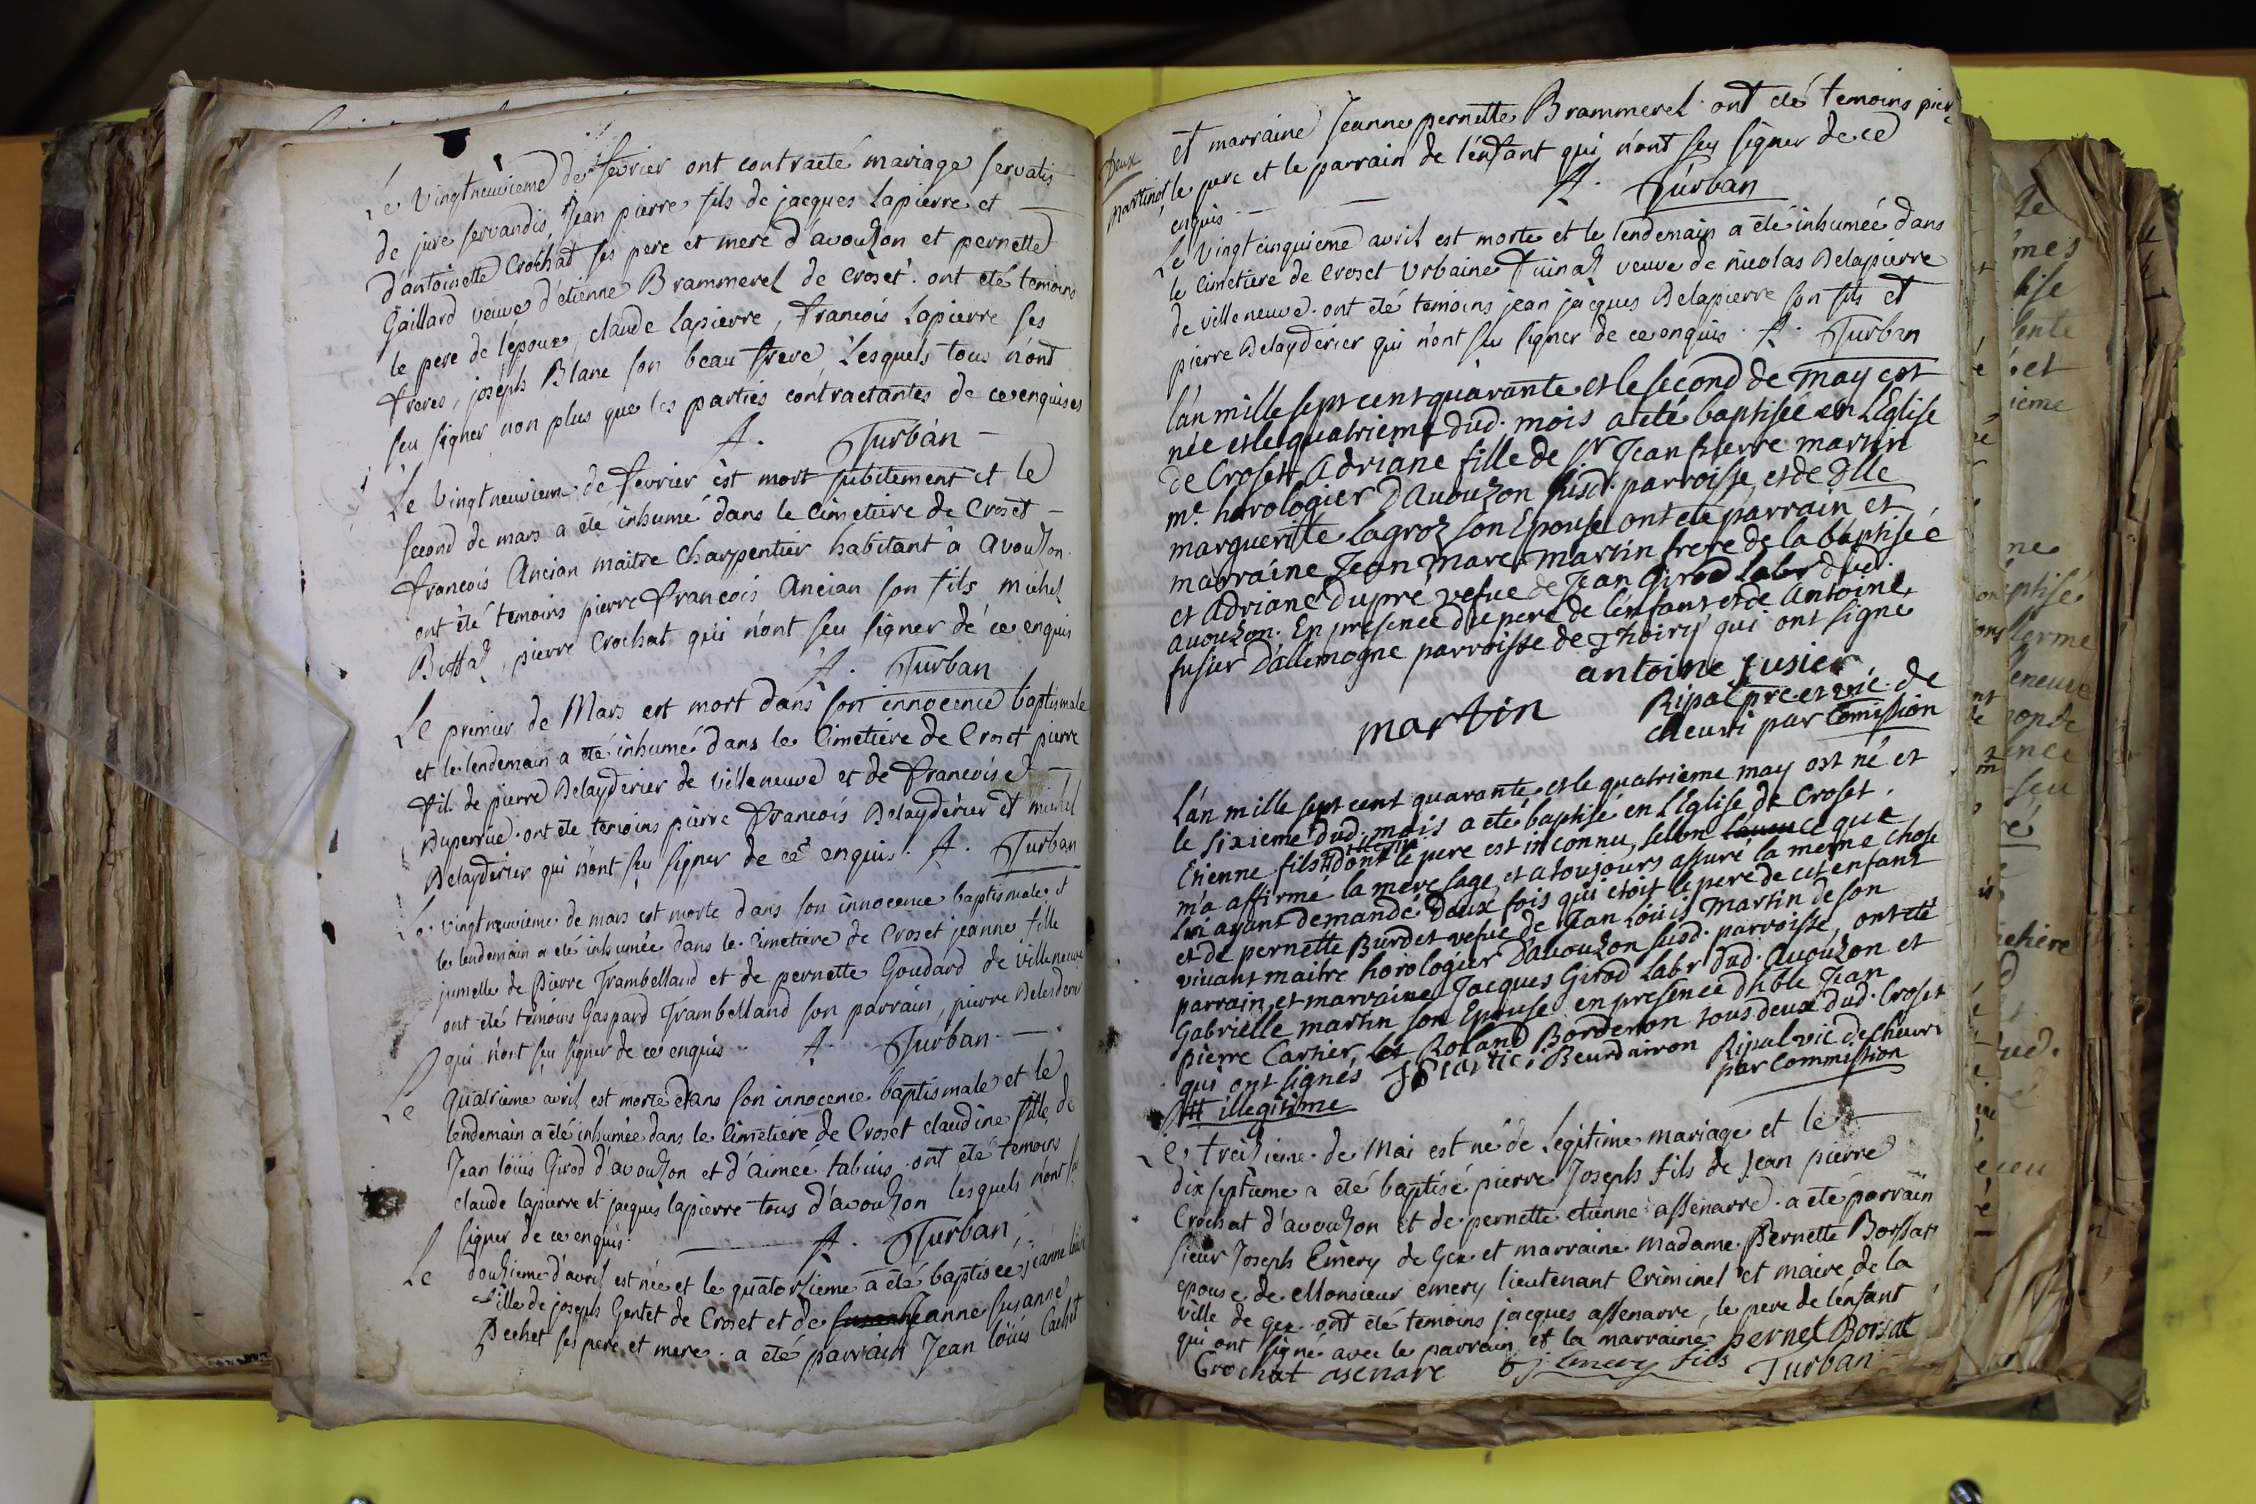 Le vingt neuvieme de fevrier ont contracté mariage servatis
de jure servandis, Jean pierre fils de jacques Lapierre et
d'antoinette Crochat ses pere et mere d'avouzon et pernette
Gaillard veuve d'etienne Brammerel de croset. ont eté temoins
le pere de l'époux, claude Lapierre, francois Lapierre ses
freres, joseph Blanc son beau frere Lesquels tous n'ont
seu signer non plus que les parties contractantes de ce enquises
A. Turban
Le Vingt neuvieme de fevrier est mort subitement et le
second de mars a été inhumé dans le cimetiere de Croset
francois Ancian maitre charpentier habitant à avouzon.
ont été temoins pierre francois Ancian son fils michel
Buffaz, pierre Crochat qui n'ont seu signer de ce enquis
A. Turban
Le premier de Mars est mort dans son innocence baptismale
et le lendemain a été inhumé dans le Cimetiére de Croset pierre
fils de pierre Delayderier de villeneuve et de francoise
Duperrue. ont été temoins pierre francois Delayderier et michel
Delayderier qui n'ont seu signer de ce enquis. A. Turban
Le vingt neuvieme de mars est morte dans son innocence baptismale et
le lendemain a été inhumée dans le cimetiere de Croset jeanne fille
jumelle de Pierre Trambelland et de pernette Goudard de villeneuve
ont été temoins Gaspard Trambelland son parrain, pierre
qui n'ont seu signer de ce enquis. A. Turban.
Le quatrieme avril est morte dans son innocence baptismale et le
lendemain a été inhumée dans le Cimetiere de Croset claudine fille de
Jean loüis Girod d'avouzon et d'aimeé tabuis. ont été temoins
claude lapierre et jacques lapierre tous d'avouzon lesquels n'ont seu
signer de ce enquis. A. Turban.
Le douzieme d'avril est née et le quatorzieme a été baptisée jeanne loüise
fille de joseph Gentet de Croset et de jeanne susanne
Pechet ses pere et mere. a été parrain Jean loüis Cachet
et marraine Jeanne pernette Brammerel. ont été temoins pier
Deux
Martinot
le pere et le parrain de l'enfant qui n'ont seu signer de ce
enquis A. Turban
Le vingt cinquieme avril est morte et le lendemain a été inhumée dans
le cimetiere de Croset Urbaine Tuinaz veuve de nicolas Delapierre
de villeneuve. ont été temoins jean jacques Delapierre son fils et
pierre Delayderier qui n'ont seu signer de ce enquis. A. Turban
l'an mille sept cent quarante et le second de may est
née et le quatrieme dud. mois a été baptisée en L'Eglise
de Croset Adriane fille de Sr Jean pierre martin
me. horologier D'avouzon susd. parroisse et de Dlle
marguerite Lagroz son Epouse ont été parrain et
marraine Jean Marc Martin frere de la baptisée
et Adriane Dupré vefue de Jean Girod Labr dud.
avouzon. En presence du pere de l'enfant et de Antoine
fusier D'allemogne parroisse de Thoiry qui ont signé
antoine fusier
martin Ripal pre. et vic. de
cheuri par Comission
L'an mille sept cent quarante et le quatrieme may est né et
le sixieme dud. mois a été baptisé en L'Eglise de Croset.
Etienne fils # dont le pere est inconnu, selon ce que
m'a affirmé la mere sage, et a toujours assuré la meme chose
Lui ayant demandé Deux fois qui etoit le pere de cet enfant
et de pernette Burdet vefue de Jean Loüis Martin de son
vivant maitre horologier D'avouzon susd. parroisse, ont été
parrain, et marraine Jacques Girod Labr dud. Avouzon et
Gabrielle martin son Epouse en presence d'hble Jean
pierre Cartier, Roland Borderon tous deux dud. Croset
qui ont signés Beurdairon Ripal vic de Cheuri
par Commission
# illegitime
Le treizieme de Mai est né de Legitime mariage et le
dix septieme a été baptisé pierre Joseph fils de Jean pierre
Crochat d'avouzon et de pernette etienne assenarre. a été parrain
sieur Joseph Emery de Gex et marraine Madame Pernette Borssat
epouse de Monsieur emery lieutenant Criminel et maire de la
ville de Gex. ont été temoins jacques assenarre, le pere de lenfant
qui ont signé avec le parrain et la marraine pernet Borsat
Crochat asenare J. Emery fils Turban